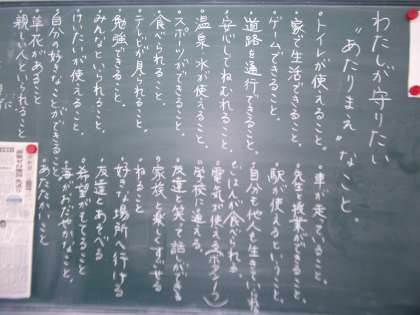 わたしが守りたい
"あたりまえ"なこと。
・トイレが使えること。
・家で生活できること。
・ゲームできること。
・道路を通行できること。
・安心してねむれること。
・温泉、水が使えること。
・スポーツができること。
・食べられること。
・テレビが見られること。
・勉強できること。
・みんなといられること。
・けいたいが使えること。
・自分の好きなことができること
・草花があること
・親しい人といられること。
・車が走っていること。
・先生と授業ができること。
・駅が使えるということ。
・自分も他人も生きている
・ごはんが食べられる。
・電気が使える
・学校に通える
・友達と笑って話しができる
・家族と楽しくすごせる
・ねること
・好きな場所へ行ける
・友達とあそべる
・希望がもてること
・海がおだやかなこと。
・あたたかいこと